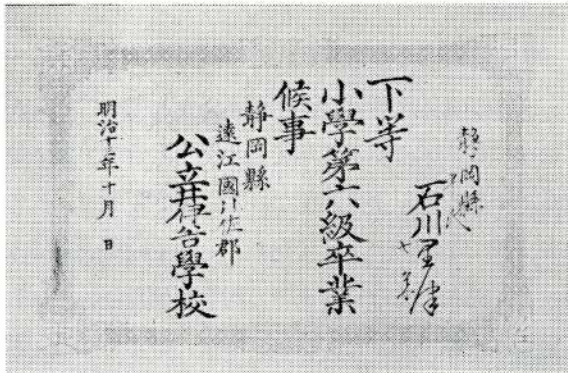 静岡縣
石川
下等
小學第六級卒業
候事
静岡縣
遠江國引佐郡
公立井伊谷學校
明治十一年十月 日